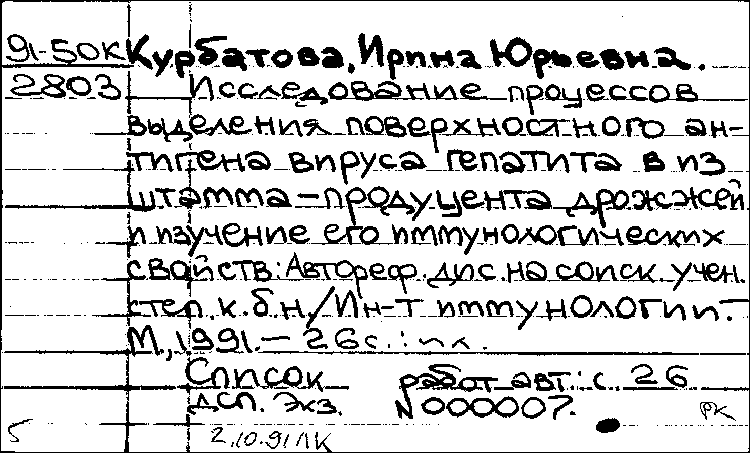 91-50К Курбатова, Ирина Юрьевна.
2803 Исследование процессов
выделения поверхностного ан-
тигена вируса гепатита в из
штамма-продуцента дрожжей
и изучение его иммунологических
свойств: Автореф. дис. на соиск. учен.
степ. к.б.н./Ин-т иммунологии.-
М., 1991.- 26с.: ил.
Список работ авт.: с. 26
ДСП. Экз. N 000007.
РК
5 2.10.91 ЛК